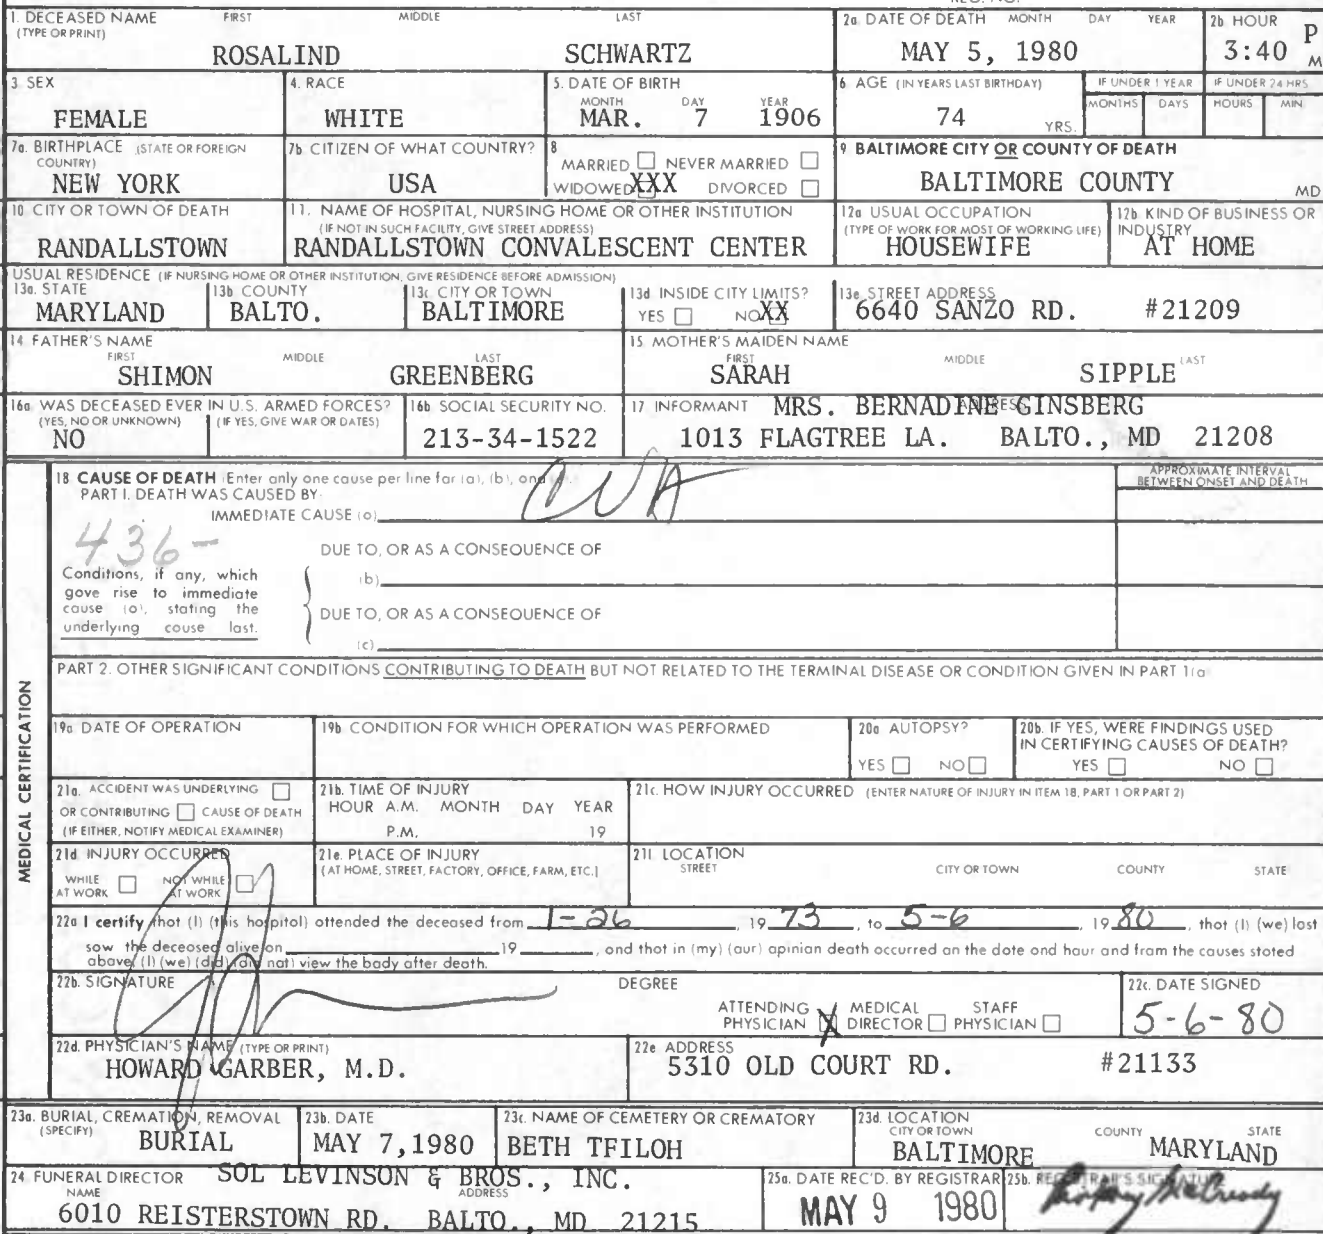 1. DECEASED NAME (TYPE OR PRINT) FIRST MIDDLE LAST
ROSALIND SCHWARTZ
2a DATE OF DEATH MONTH DAY YEAR
MAY 5, 1980
2b HOUR
3:40 P M
3 SEX
FEMALE
4. RACE
WHITE
5. DATE OF BIRTH
MONTH DAY YEAR
MAR. 7 1906
6 AGE (IN YEARS LAST BIRTHDAY)
74 YRS.
IF UNDER 1 YEAR
MONTHS DAYS
IF UNDER 24 HRS
HOURS MIN
7a. BIRTHPLACE (STATE OR FOREIGN COUNTRY)
NEW YORK
7b CITIZEN OF WHAT COUNTRY?
USA
8
MARRIED NEVER MARRIED
WIDOWED XXX DIVORCED
9 BALTIMORE CITY OR COUNTY OF DEATH
BALTIMORE COUNTY MD
10 CITY OR TOWN OF DEATH
RANDALLSTOWN
11. NAME OF HOSPITAL, NURSING HOME OR OTHER INSTITUTION
(IF NOT IN SUCH FACILITY, GIVE STREET ADDRESS)
RANDALLSTOWN CONVALESCENT CENTER
12a USUAL OCCUPATION
(TYPE OF WORK FOR MOST OF WORKING LIFE)
HOUSEWIFE
12b KIND OF BUSINESS OR INDUSTRY
AT HOME
USUAL RESIDENCE (IF NURSING HOME OR OTHER INSTITUTION, GIVE RESIDENCE BEFORE ADMISSION)
13a. STATE
MARYLAND
13b COUNTY
BALTO.
13c CITY OR TOWN
BALTIMORE
13d INSIDE CITY LIMITS?
YES NO XX
13e STREET ADDRESS
6640 SANZO RD. #21209
14 FATHER'S NAME
FIRST MIDDLE LAST
SHIMON GREENBERG
15 MOTHER'S MAIDEN NAME
FIRST MIDDLE LAST
SARAH SIPPLE
16a WAS DECEASED EVER IN U.S. ARMED FORCES?
(YES, NO OR UNKNOWN) (IF YES, GIVE WAR OR DATES)
NO
16b SOCIAL SECURITY NO.
213-34-1522
17 INFORMANT ADDRESS
MRS. BERNADINE GINSBERG
1013 FLAGTREE LA. BALTO., MD 21208
MEDICAL CERTIFICATION
18 CAUSE OF DEATH (Enter only one cause per line for (a), (b), and
PART I. DEATH WAS CAUSED BY:
IMMEDIATE CAUSE (a) CVA
APPROXIMATE INTERVAL BETWEEN ONSET AND DEATH
436-
Conditions, if any, which
gave rise to immediate
cause (a), stating the
underlying cause last.
DUE TO, OR AS A CONSEQUENCE OF
(b)
DUE TO, OR AS A CONSEQUENCE OF
(c)
PART 2. OTHER SIGNIFICANT CONDITIONS CONTRIBUTING TO DEATH BUT NOT RELATED TO THE TERMINAL DISEASE OR CONDITION GIVEN IN PART 1(a)
19a DATE OF OPERATION
19b CONDITION FOR WHICH OPERATION WAS PERFORMED
20a AUTOPSY?
YES NO
20b. IF YES, WERE FINDINGS USED
IN CERTIFYING CAUSES OF DEATH?
YES NO
21a. ACCIDENT WAS UNDERLYING
OR CONTRIBUTING CAUSE OF DEATH
(IF EITHER, NOTIFY MEDICAL EXAMINER)
21b. TIME OF INJURY
HOUR A.M. MONTH DAY YEAR
P.M. 19
21c. HOW INJURY OCCURRED (ENTER NATURE OF INJURY IN ITEM 18, PART 1 OR PART 2)
21d INJURY OCCURRED
WHILE AT WORK NOT WHILE AT WORK
21e. PLACE OF INJURY
(AT HOME, STREET, FACTORY, OFFICE, FARM, ETC.)
21f LOCATION
STREET CITY OR TOWN COUNTY STATE
22a I certify that (I) (this hospital) attended the deceased from 1-26, 19 73, to 5-6, 19 80, that (I) (we) last
saw the deceased alive on 19, and that in (my) (our) opinion death occurred on the date and hour and from the causes stated
above, (I) (we) (did) (did not) view the body after death.
22b. SIGNATURE
DEGREE
ATTENDING PHYSICIAN X MEDICAL DIRECTOR STAFF PHYSICIAN
22c. DATE SIGNED
5-6-80
22d. PHYSICIAN'S NAME (TYPE OR PRINT)
HOWARD GARBER, M.D.
22e ADDRESS
5310 OLD COURT RD. #21133
23a. BURIAL, CREMATION, REMOVAL
(SPECIFY)
BURIAL
23b. DATE
MAY 7,1980
23c. NAME OF CEMETERY OR CREMATORY
BETH TFILOH
23d. LOCATION
CITY OR TOWN COUNTY STATE
BALTIMORE MARYLAND
24 FUNERAL DIRECTOR
NAME ADDRESS
SOL LEVINSON & BROS., INC.
6010 REISTERSTOWN RD. BALTO., MD 21215
25a. DATE REC'D. BY REGISTRAR
MAY 9 1980
25b. REGISTRAR'S SIGNATURE